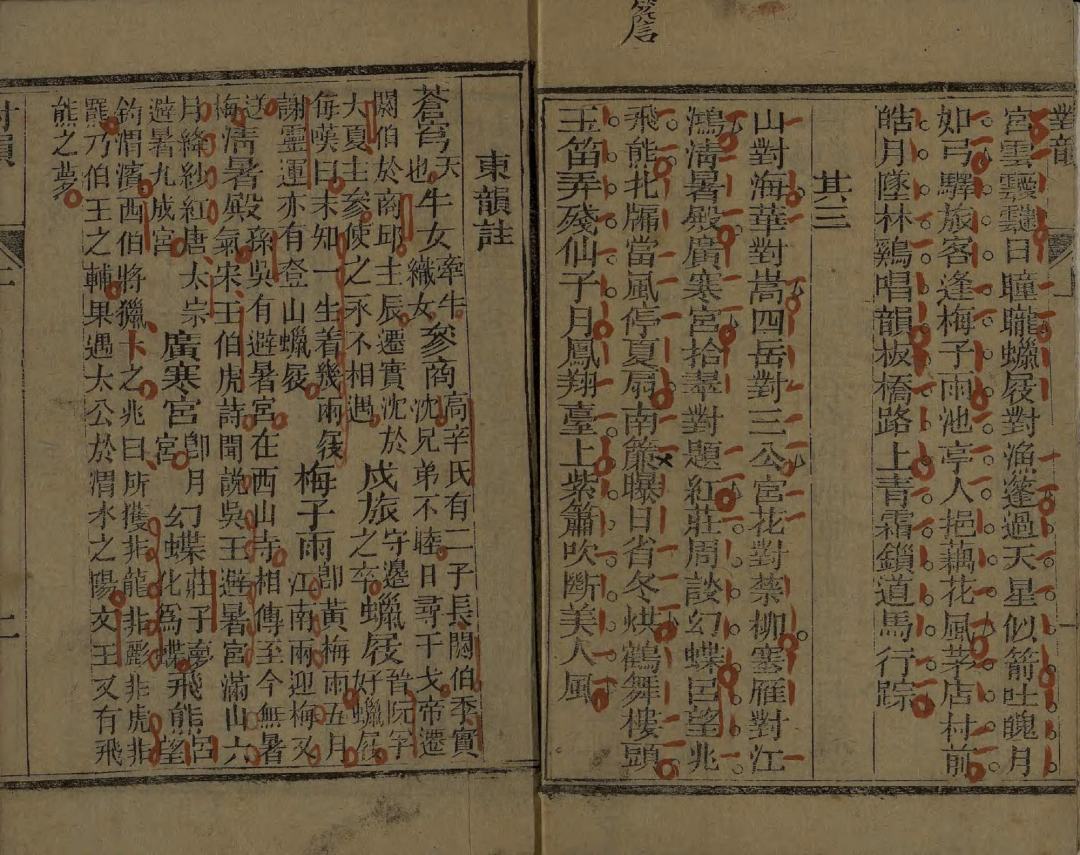 對韻
宮雲靉靆日曈曨蠟屐對漁蓬過天星似箭吐魄月
如弓驛旅客逢梅子雨池亭人挹藕花風茅店村前
皓月墜林鷄唱韻板橋路上青霜鎖道馬行踪
其三
山對海華對嵩四岳對三公宮花對禁柳塞雁對江
鴻淸暑殿廣寒宮拾翠對題紅莊周談幻蝶呂望兆
飛熊北牖當風停夏扇南策曝日省冬烘鶴舞樓頭
玉笛弄殘仙子月鳳翔臺上紫簫吹斷美人風
東韻註
蒼穹天也牛女牽牛織女參商高辛氏有二子長閼伯季實沈兄弟不睦日尋干戈帝遷
閼伯於商邱主辰遷實沈於大夏主參使之永不相遇戍旅守邊之卒蠟屐晉阮孚好蠟屐
每嘆曰未知一生着幾兩屐謝靈運亦有登山蠟屐梅子雨卽黃梅雨五月江南雨迎梅又
送梅淸暑殿孫吳有避暑宮在西山寺相傳至今無暑氣宋王伯虎詩聞說吳王避暑宮滿山六
月絳紗紅唐太宗避暑九成宮廣寒宮卽月宮幻蝶莊子夢化爲蝶飛熊呂望
釣渭濱西伯將獵卜之兆曰所獲非龍非彲非虎非羆乃伯王之輔果遇太公於渭水之陽文王又有飛
熊之夢